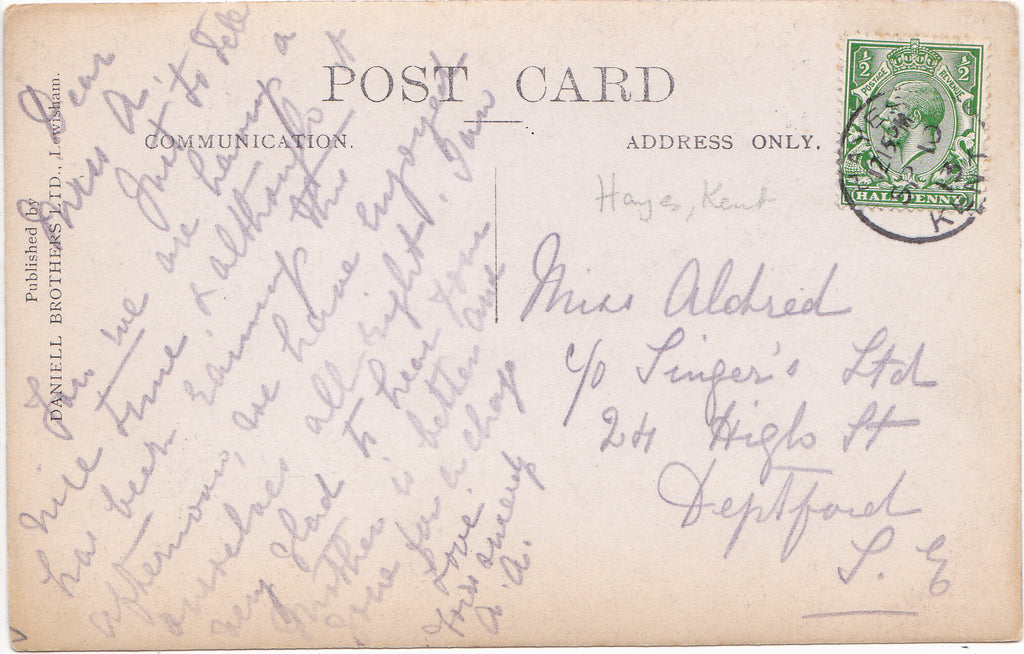 POST CARD
COMMUNICATION.
ADDRESS ONLY.
Published by
DANIELL BROTHERS LTD., Lewisham.
Dear
Miss A
Just to tell
you we are having a
nice time, & although it
has been raining this
afternoon, we have enjoyed
ourselves all right. I am
very glad to hear
mother is better and
gone for a change
Love
Yours sincerely
A.
Hayes, Kent
Miss Aldred
c/o Singer's Ltd
24 High St
Deptford
S. E
½ ½
POSTAGE REVENUE
HALFPENNY
HAYES
KENT